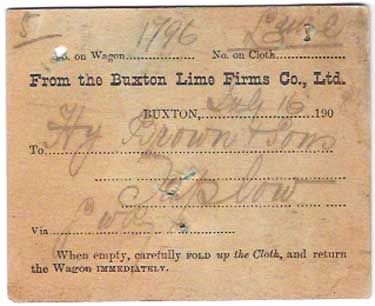 5 1796
No. on Wagon No. on Cloth
From the Buxton Lime Firms Co., Ltd.
BUXTON, July 16 190
To Hy Brown & Sons
Taplow
Via GWR
When empty, carefully FOLD up the Cloth, and return
the Wagon IMMEDIATELY.